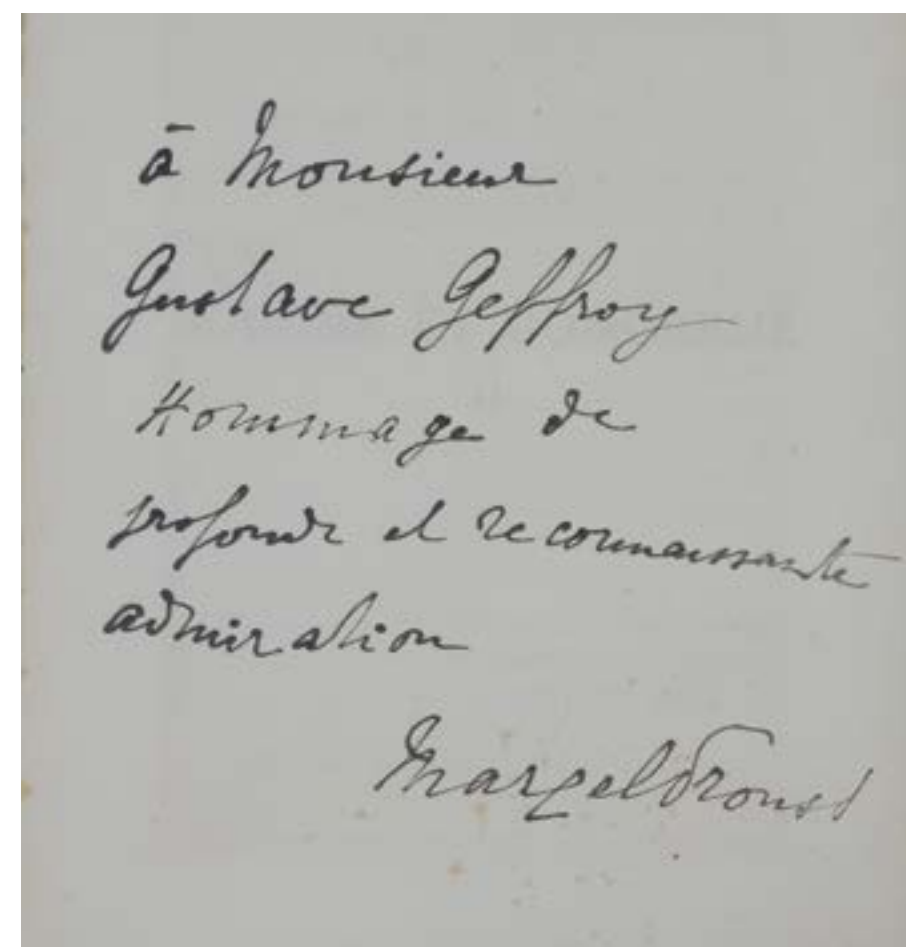 à Monsieur
Gustave Geffroy
Hommage de
profonde et reconnaissante
admiration
Marcel Proust